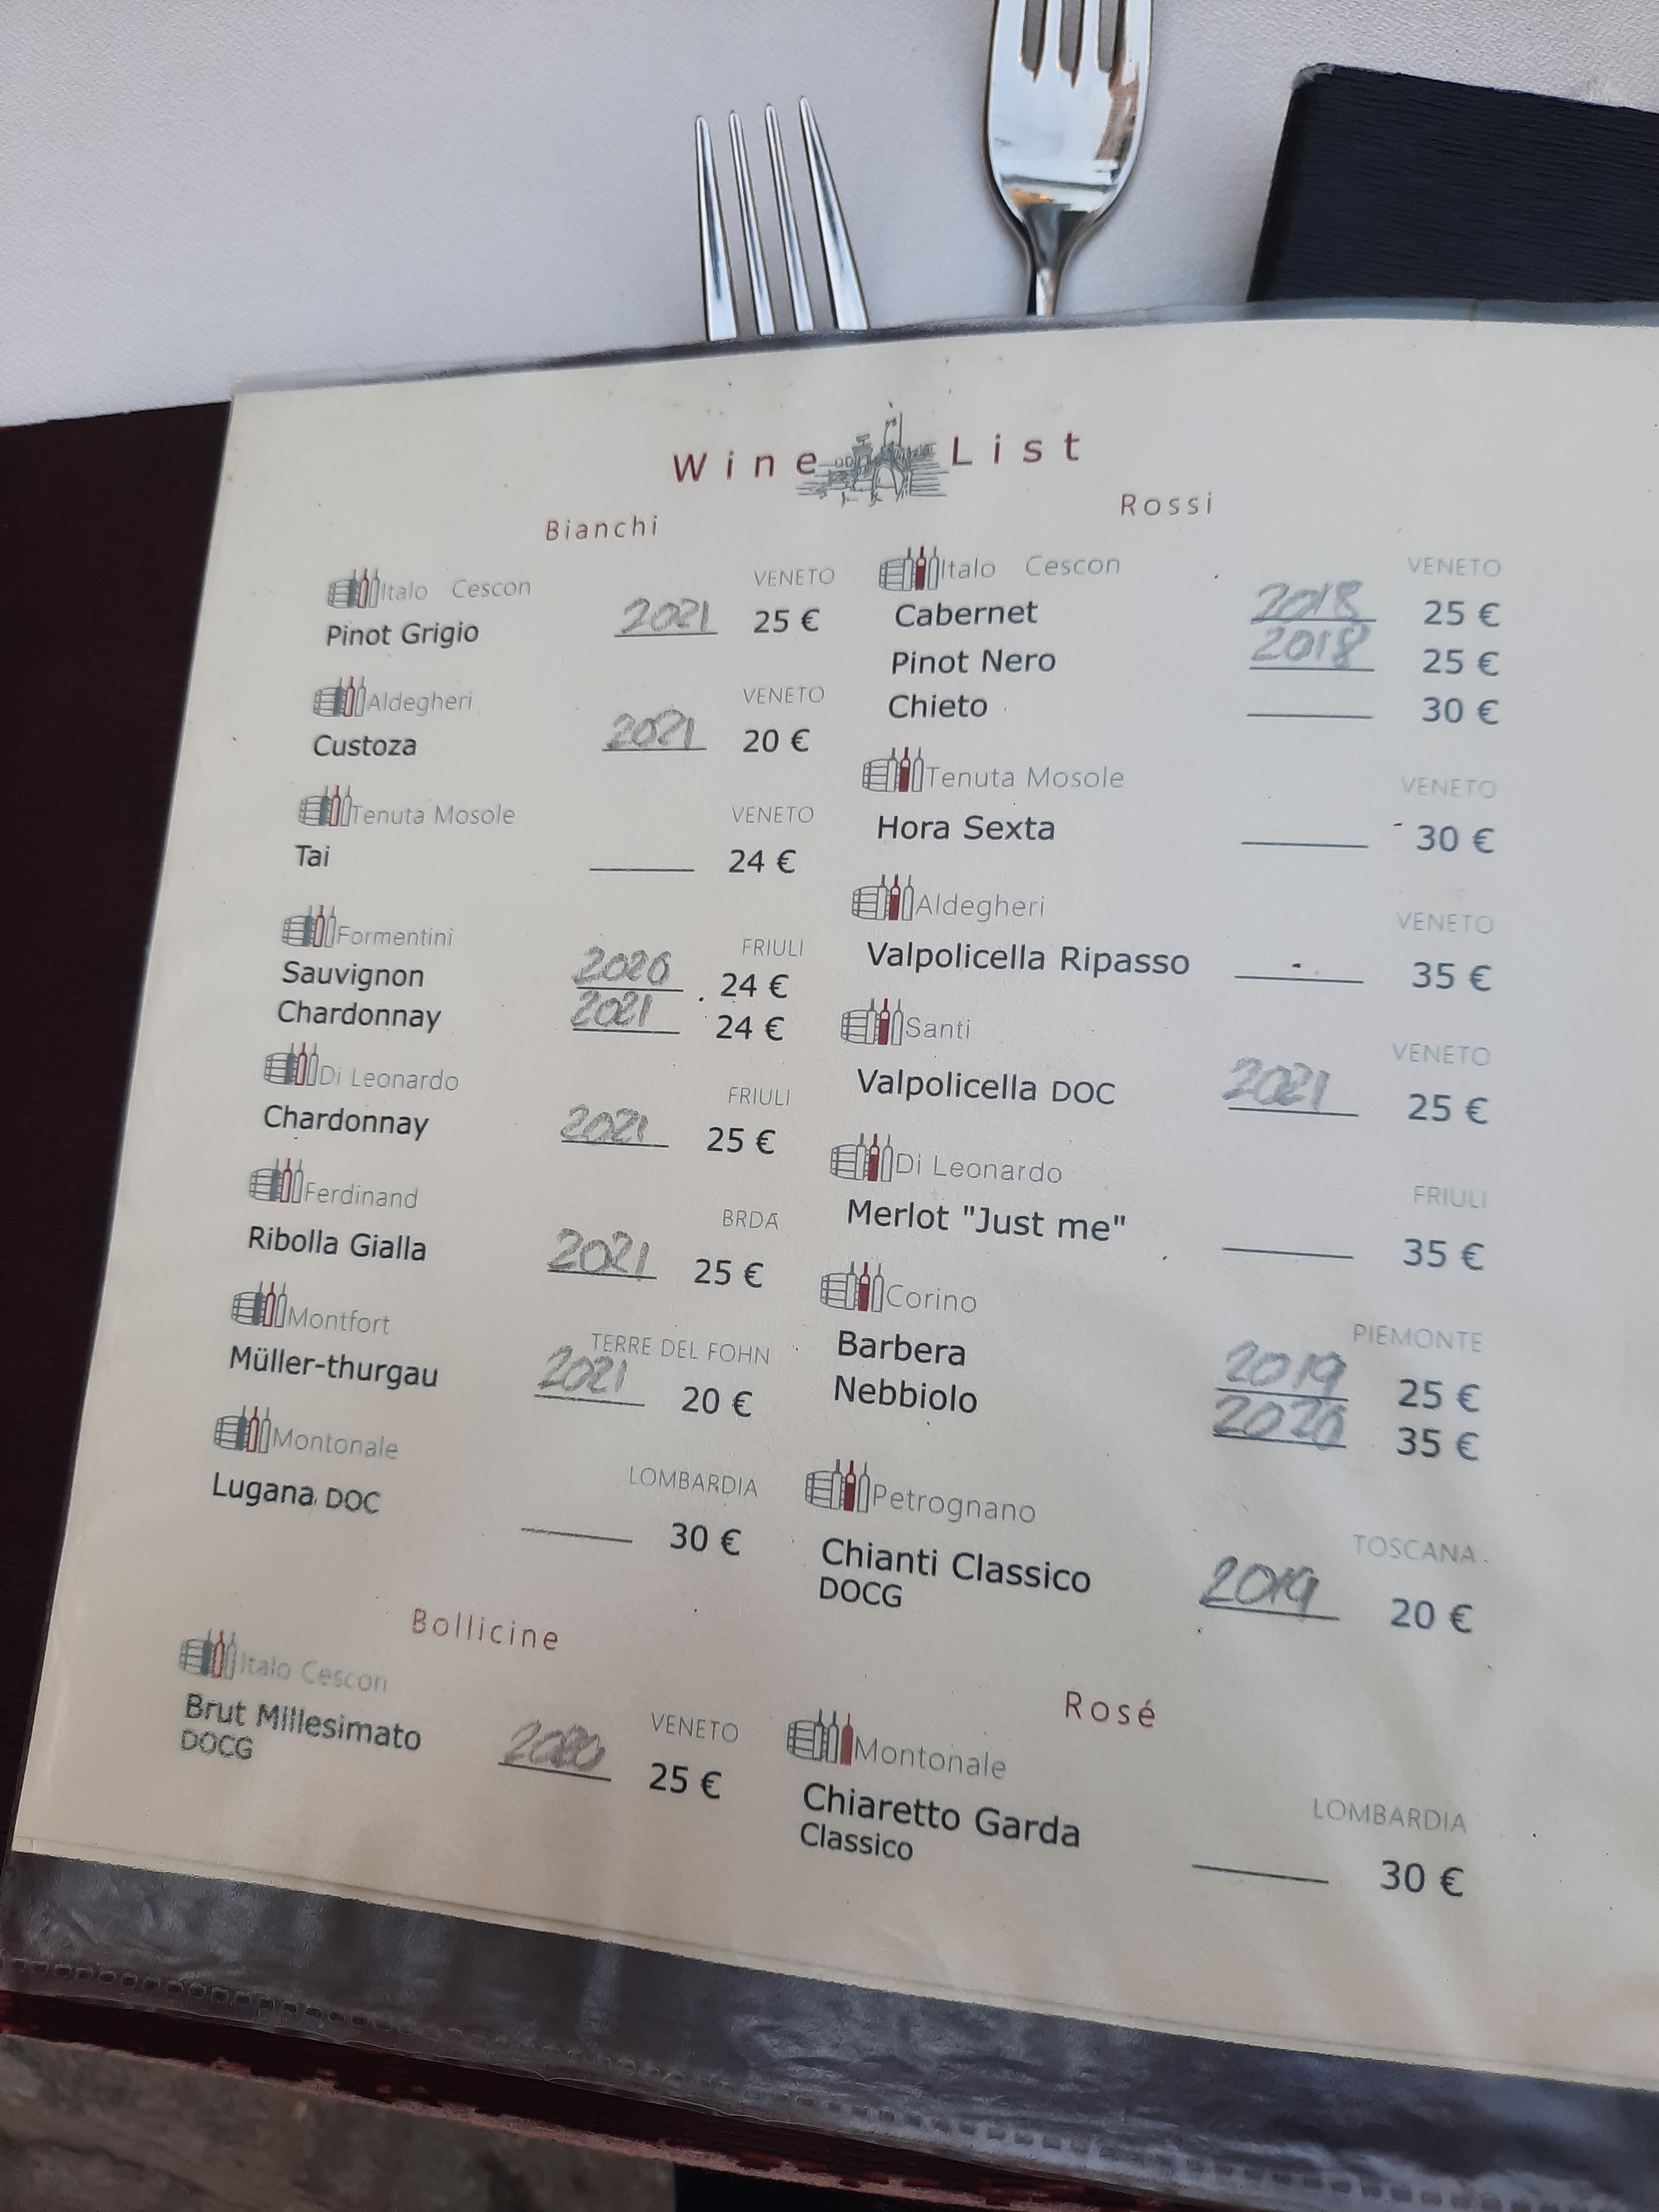 Wine List
Bianchi
Italo Cescon
VENETO
Pinot Grigio 2021 25 €
Aldegheri
VENETO
Custoza 2021 20 €
Tenuta Mosole
VENETO
Tai 24 €
Formentini
FRIULI
Sauvignon 2020 24 €
Chardonnay 2021 24 €
Di Leonardo
FRIULI
Chardonnay 2021 25 €
Ferdinand
BRDA
Ribolla Gialla 2021 25 €
Montfort
TERRE DEL FOHN
Müller-thurgau 2021 20 €
Montonale
LOMBARDIA
Lugana DOC 30 €
Bollicine
Italo Cescon
VENETO
Brut Millesimato 2020 25 €
DOCG
Rossi
Italo Cescon
VENETO
Cabernet 2018 25 €
Pinot Nero 2018 25 €
Chieto 30 €
Tenuta Mosole
VENETO
Hora Sexta 30 €
Aldegheri
VENETO
Valpolicella Ripasso 35 €
Santi
VENETO
Valpolicella DOC 2021 25 €
Di Leonardo
FRIULI
Merlot "Just me" 35 €
Corino
PIEMONTE
Barbera 2019 25 €
Nebbiolo 2020 35 €
Petrognano
TOSCANA
Chianti Classico 2019 20 €
DOCG
Rosé
Montonale
LOMBARDIA
Chiaretto Garda 30 €
Classico